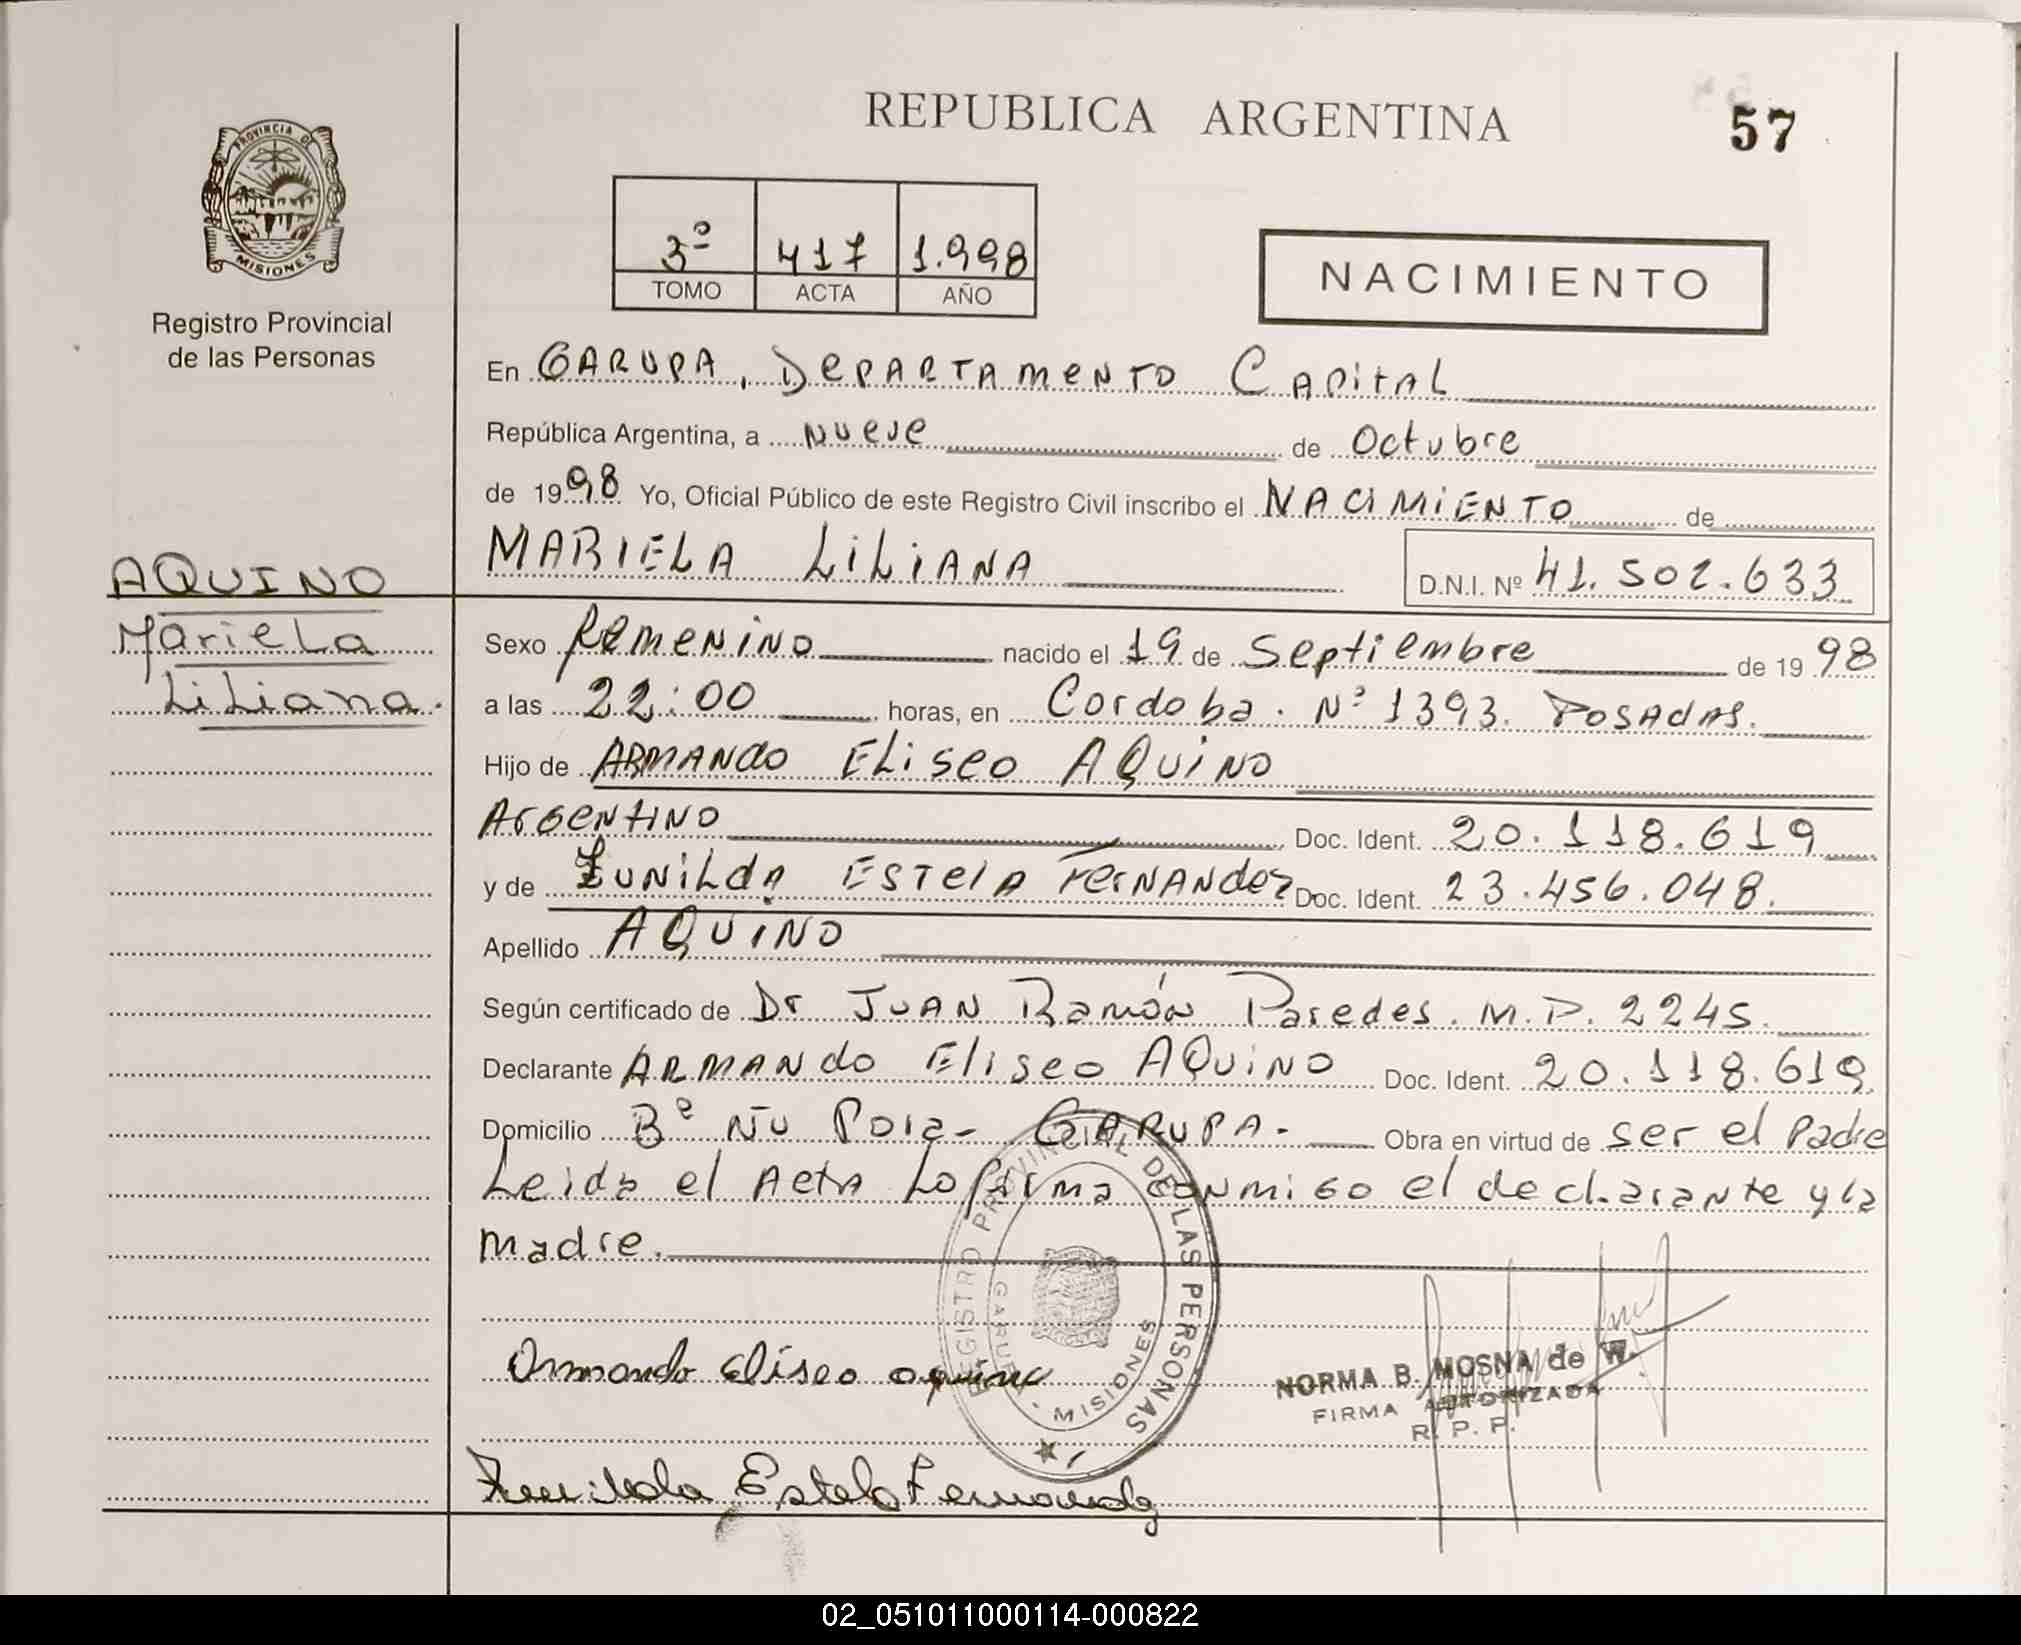 REPUBLICA ARGENTINA
57
PROVINCIA DE MISIONES
Registro Provincial
de las Personas
3º 417 1.998
TOMO ACTA AÑO
NACIMIENTO
En GARUPA, DEPARTAMENTO CAPITAL
República Argentina, a nueve de Octubre
de 1998 Yo, Oficial Público de este Registro Civil inscribo el NACIMIENTO de
MARIELA LILIANA D.N.I. Nº 41.502.633
AQUINO
Mariela
Liliana.
Sexo Femenino nacido el 19 de Septiembre de 1998
a las 22:00 horas, en Cordoba. Nº 1393. Posadas.
Hijo de ARMANDO Eliseo AQUINO
Argentino Doc. Ident. 20.118.619
y de Zunilda Estela Fernandez Doc. Ident. 23.456.048.
Apellido AQUINO
Según certificado de Dr JUAN Ramón Paredes. M.P. 2245.
Declarante ARMANDO Eliseo AQUINO Doc. Ident. 20.118.619
Domicilio Bº Ñu Pora- GARUPA- Obra en virtud de ser el Padre
Leida el Acta Lo firma conmigo el declarante y la
madre.
REGISTRO PROVINCIAL DE LAS PERSONAS
GARUPA MISIONES
Armando Eliseo aquino
NORMA B. MOSNA de W.
FIRMA AUTORIZADA
R. P. P.
Zunilda Estela Fernandez
02_051011000114-000822